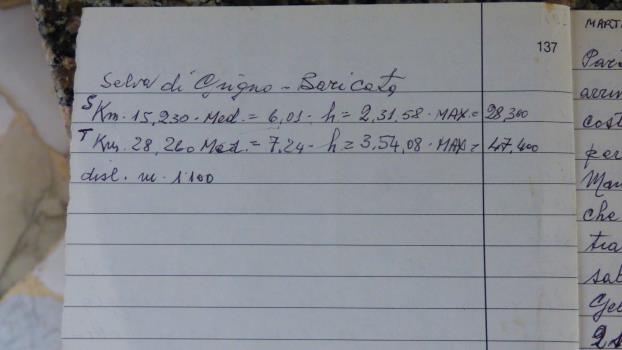 137
Selva di Grigno - Baricata
S Km. 15,230 - Med. = 6,01 - h = 2,31.58 - MAX. = 28,300
T Km. 28,260 Med. = 7,24 - h = 3,54,08 - MAX = 47,400
disl. m. 1100
MART
Par
arrin
cost
per
Man
che
tra
sab
Gel